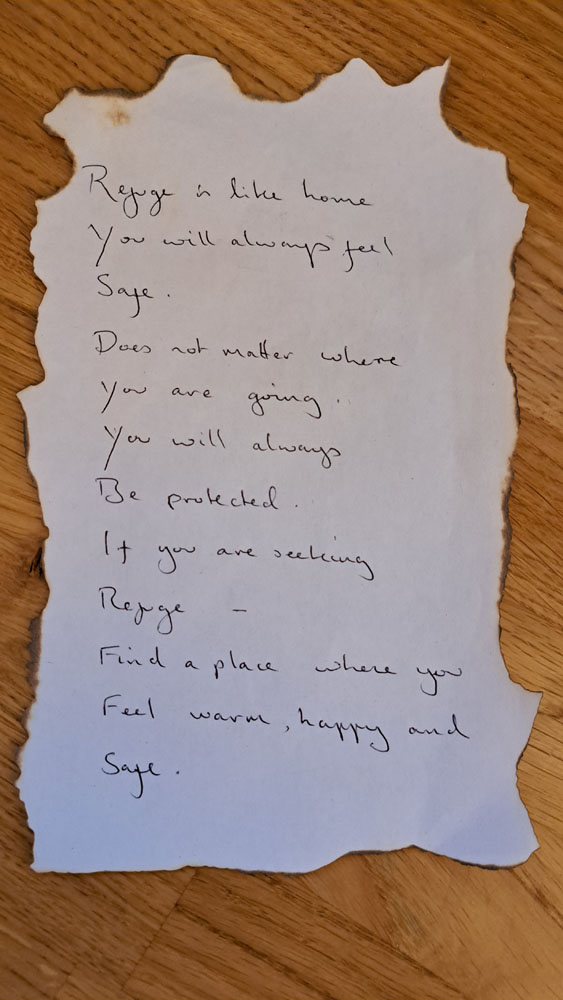 Refuge is like home
You will always feel
Safe.
Does not matter where
You are going.
You will always
Be protected.
If you are seeking
Refuge -
Find a place where you
Feel warm, happy and
Safe.